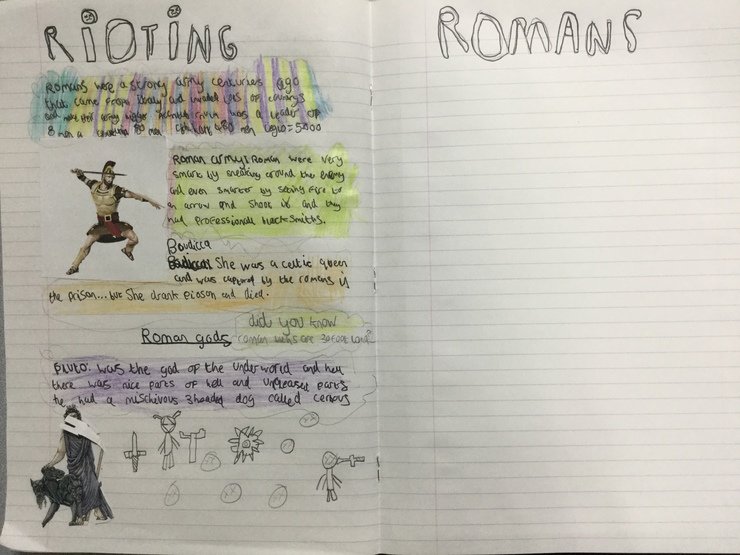 RiOTiNG
ROMANS
Romans were a strong army centuries ago
that came from itealy and invaded lots of countrys
and made their army bigger was a leader of
8 men a 80 men 480 men legio=5000
Roman army: Roman were very
smart by sneaking around the enemy
and even smarter by seting fire to
an arrow and shoot it and they
had professional blacksmiths.
Boudicca
Boudicca: She was a celtic queen
and was captured by the romans in
the prison...but She drank pioson and died.
did you know
roman are 30 foot
Roman gods
PLUTO: was the god of the underworld and hell
there was nice parts of hell and unpleased parts
he had a mischivous 3 headed dog called